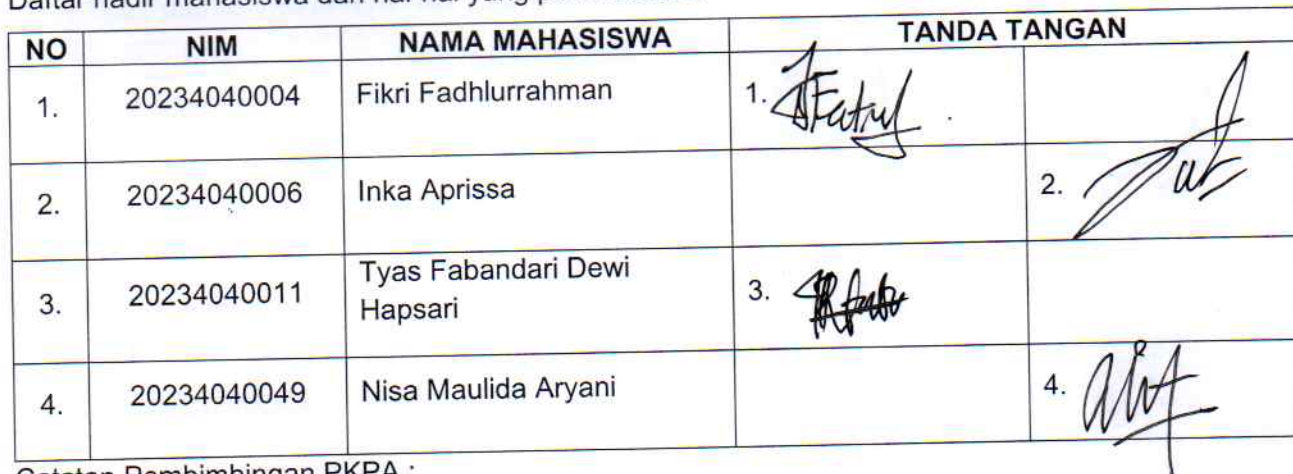 Daftar hadir mahasiswa dan hal-hal yang
NO NIM NAMA MAHASISWA TANDA TANGAN
1. 20234040004 Fikri Fadhlurrahman 1.
2. 20234040006 Inka Aprissa 2.
3. 20234040011 Tyas Fabandari Dewi
Hapsari 3.
4. 20234040049 Nisa Maulida Aryani 4.
Catatan Pembimbingan PKPA :